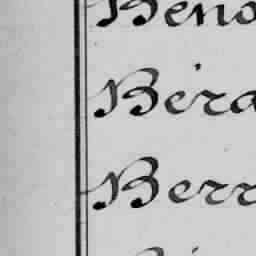 Beno
Béra
Berr